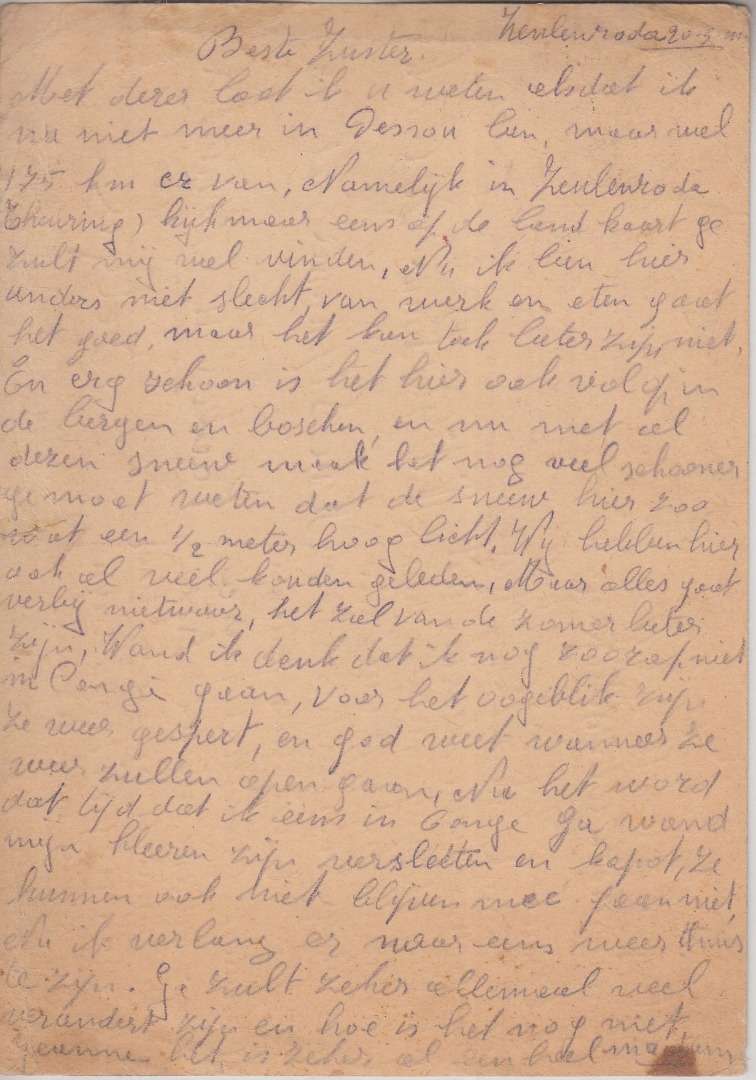 Zeulenroda 20-3
Beste Zuster.
Met dezer laat ik u weten alsdat ik
nu niet meer in Dessou ben, maar wel
175 km er van, Namelijk in Zeulenroda
Theuring) kijk maar eens op de land kaart ge
zult mij wel vinden, Nu ik ben hier
anders niet slecht, van werk en eten gaat
het goed, maar het kan toch beter zijn niet,
En erg schoon is het hier ook vol op in
de bergen en boschen, en nu met al
dezen sneuw maak het nog veel schooner
ge moet weten dat de sneuw hier zoo
wat een 1/2 meter hoog licht. Wij hebben hier
ook al veel kouden geleden, Maar alles gaat
verbij nietwaar, het zal van de zomer beter
zijn, Wand ik denk dat ik nog zoo rap niet
in Congé gaan, Voor het oogeblik zijn
ze weer gespert, en god weet wanneer ze
weer zullen open gaan, Nu het word
dat tijd dat ik eens in Conge ga wand
mijn kleeren zijn versleeten en kapot, ze
kunnen ook niet blijven mee gaan niet,
Nu ik verlang er naar eens weer thuis
te zijn. Ge zult zeker allemaal veel
verandert zijn en hoe is het nog met
Jeanne het is zeker al een heel